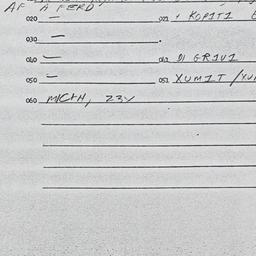 AF A FERD
020 — 021 , KOPIT1
030 —
040 — 041 DI GRIU1
050 — 051 XUMIT /XU
060 MICAN, 23Y